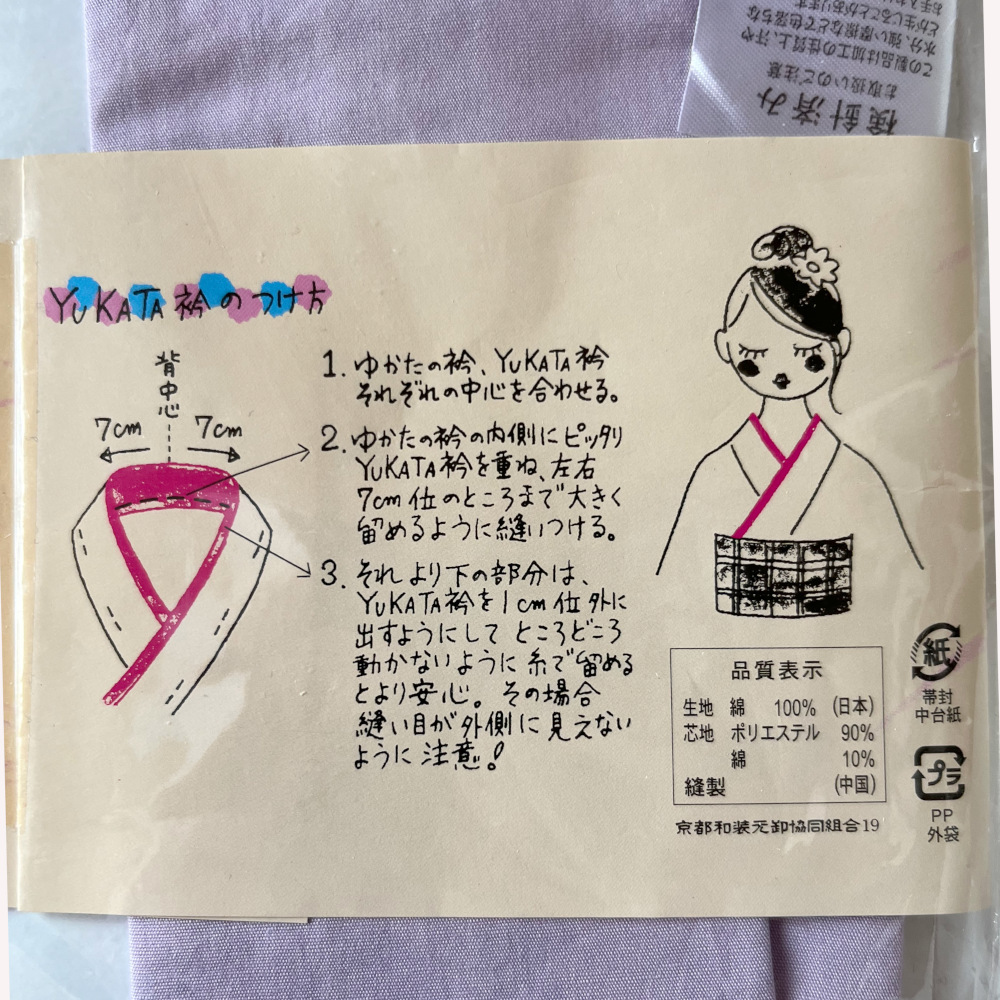 検針済み
お取扱いのご注意
この製品は加工の性質上、汗や
水分、強い摩擦などで色落ちな
どが生じることがあります
YUKATA衿のつけ方
背中心
7cm 7cm
1. ゆかたの衿、YUKATA衿
それぞれの中心を合わせる。
2. ゆかたの衿の内側にピッタリ
YUKATA衿を重ね、左右
7cm位のところまで大きく
留めるように縫いつける。
3. それより下の部分は、
YUKATA衿を1cm位外に
出すようにしてところどころ
動かないように糸で留める
とより安心。その場合
縫い目が外側に見えない
ように注意!
品質表示
生地 綿 100% (日本)
芯地 ポリエステル 90%
綿 10%
縫製 (中国)
京都和装元卸協同組合19
紙
帯封
中台紙
プラ
PP
外袋